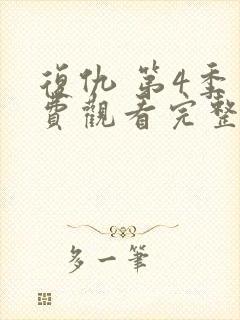 復仇 第4季
費觀看完整
多一筆